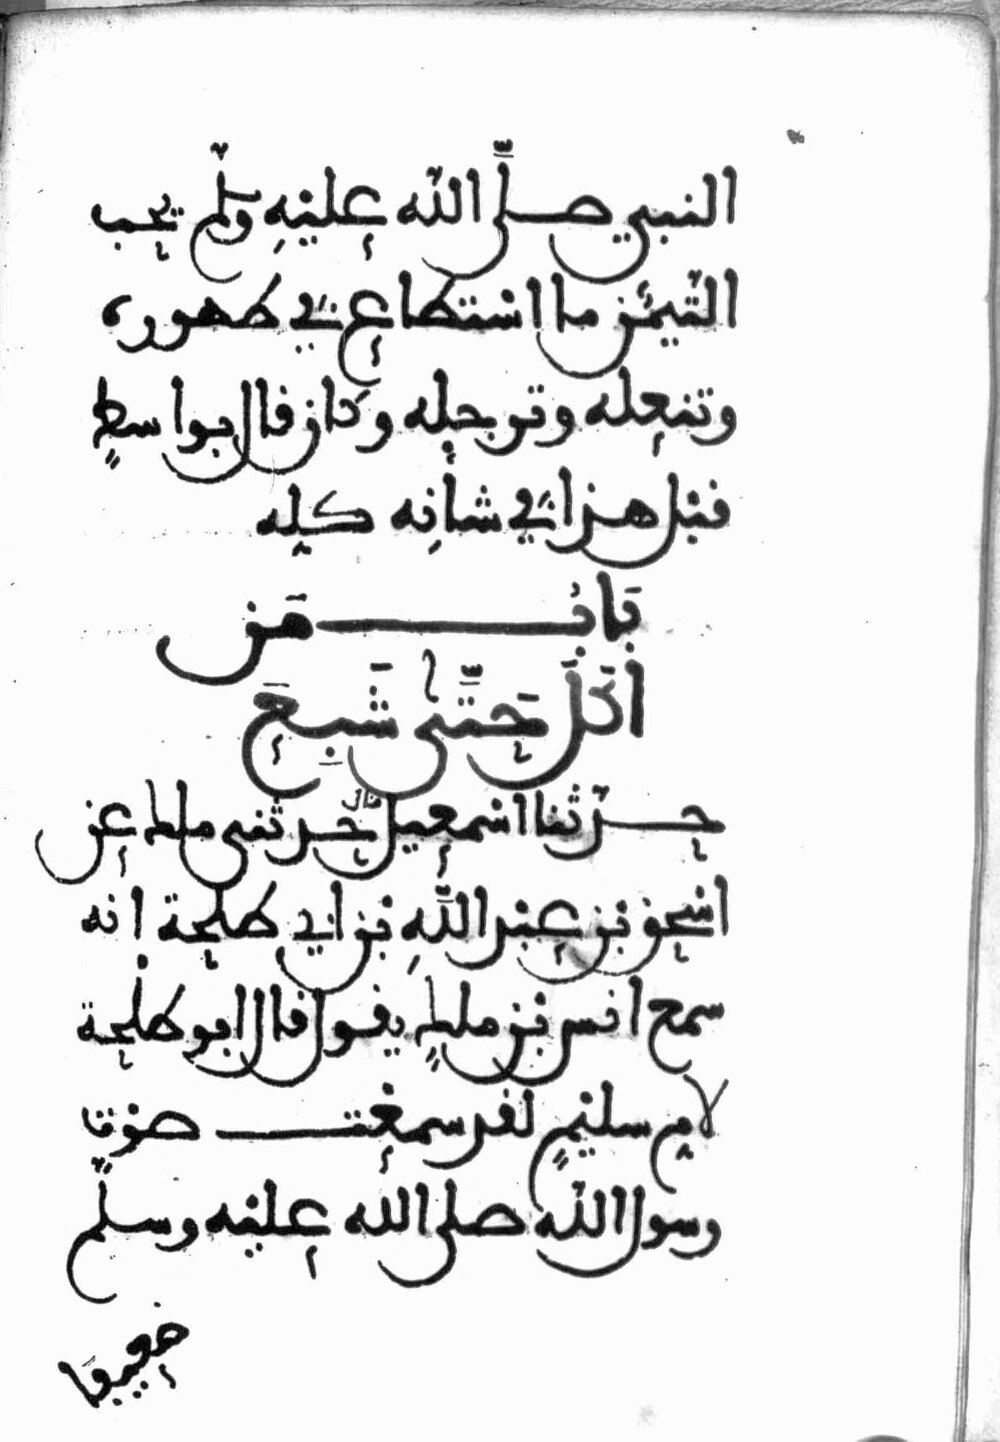 النبي صلَّى اللّه عليْهِ وسلّم يحب
التّيمّن ما اسْتطاع في طهوره
وتنعله وترجله وكان قال بواسطٍ
قبْل هذا في شأنه كله
بَابُ مَن
اَكَلَ حَتَّى شَبِعَ
حدّثنا اسْمعيل قال حدثنى ملك عن
اسْحق بْن عبْد اللّهِ بْن ابي طلْحة انه
سمع انس بْن ملكٍ يقول قال ابو طلْحة
لامّ سليْمٍ لقد سمعْت صوْت
رسول اللّه صلى الله عليْه وسلّم
ضعيفا